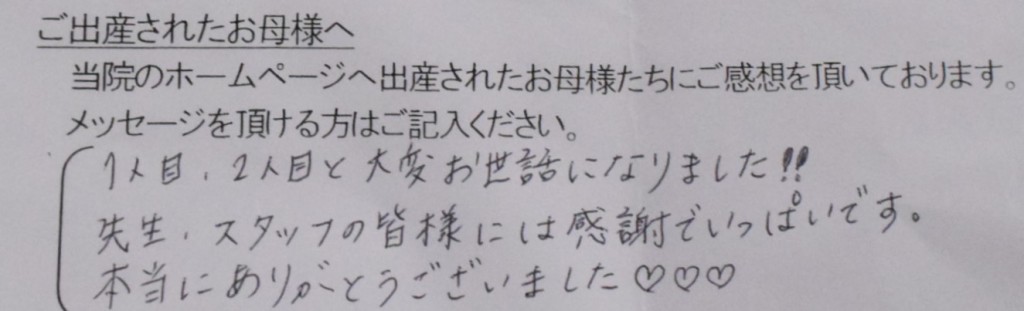 ご出産されたお母様へ
当院のホームページへ出産されたお母様たちにご感想を頂いております。
メッセージを頂ける方はご記入ください。
1人目、2人目と大変お世話になりました!!
先生、スタッフの皆様には感謝でいっぱいです。
本当にありがとうございました♡♡♡